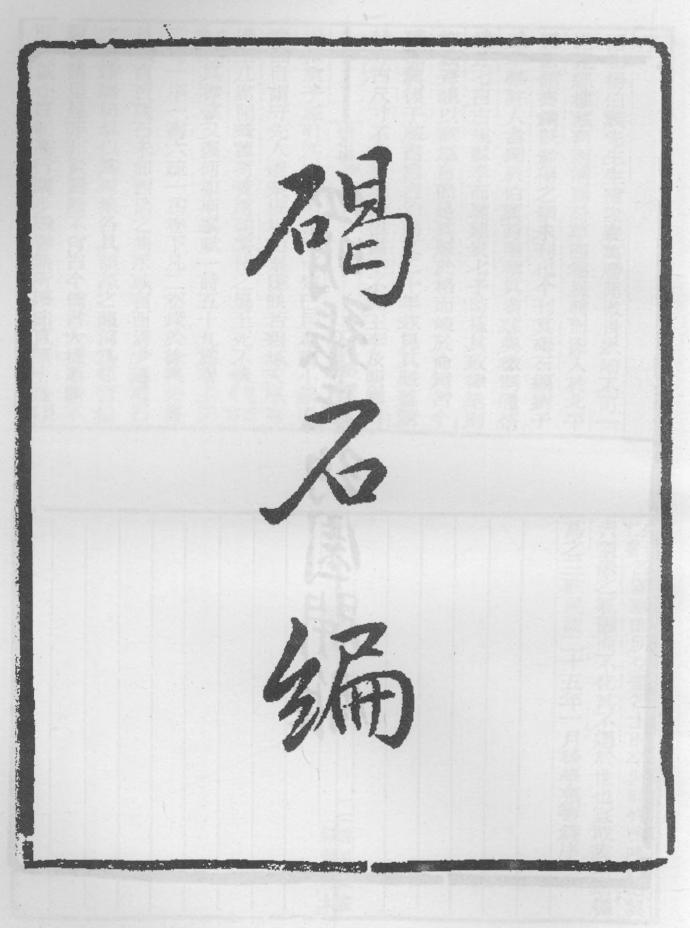 碣石編